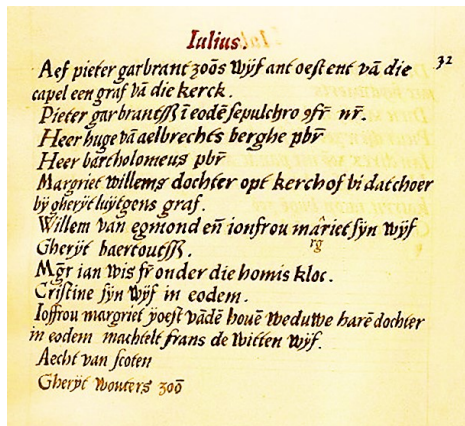 Iulius.
32
Aef pieter garbrant zoōs wÿf ant oest ent vā die
capel een graf vā die kerck.
Pieter garbrantſſ i eodē sepulchro 9fr̄ nr̄.
Heer huge vā aelbrechts berghe pbr̄
Heer bartholomeus pbr̄
Margriet willems dochter opt kerchof bi dat choer
bÿ gherÿt luÿtgens graf.
Willem van egmond en̄ ionfrou mâriet sÿn wÿf
rg
Gherÿt haertoutſſ.
Mg̃r ian wis fr̄ onder die homis kloc.
Cristine sÿn wÿf in eodem.
Ioffrou margriet ÿoest vādē houē weduwe harē dochter
in eodem machtelt frans de witten wÿf.
Aecht van scoten
Gherÿt wouters zoō